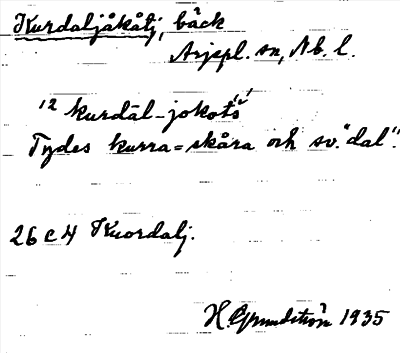 Kurdaljåkåtj, bäck
Arjepl. sn, Nb. l.
kurdāl-jokots
Tydes kurra = skåra och sv. "dal".
26 c 4 Kuordalj.
H. Grundström 1935